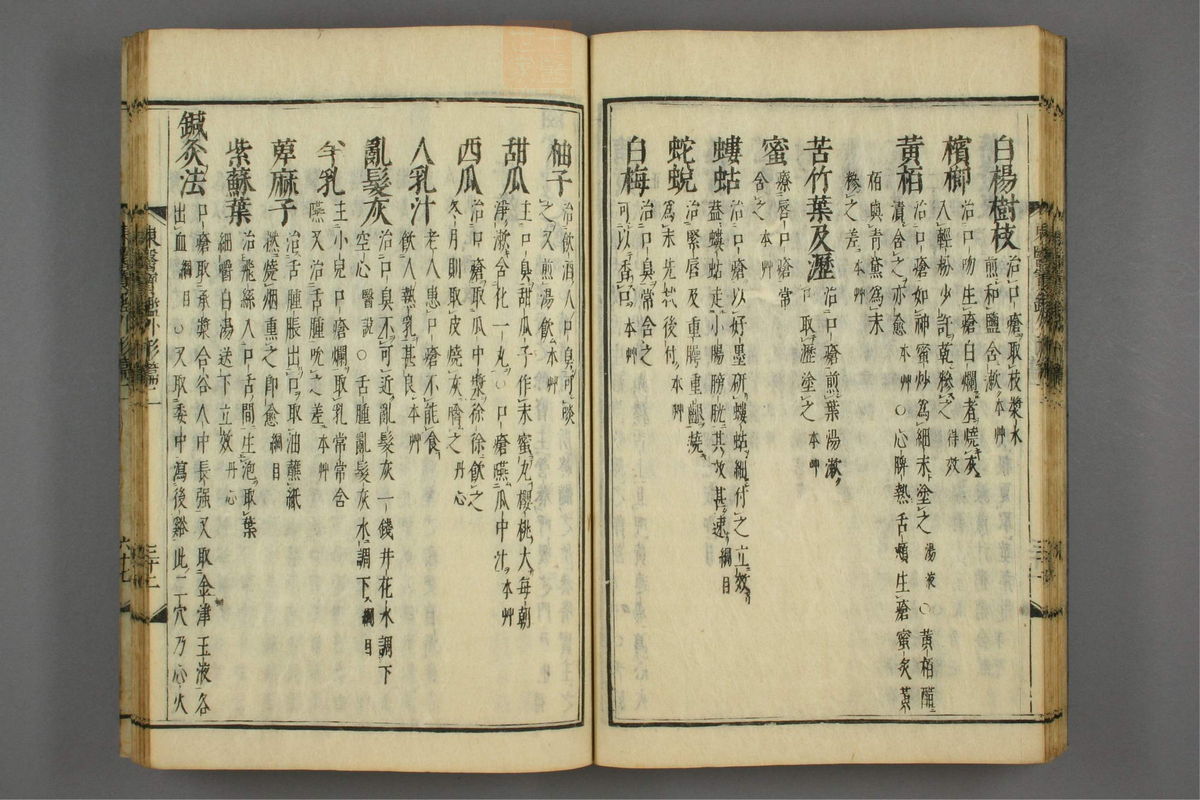 白楊樹枝 治口瘡取枝漿水
煎和鹽含漱 本艸
檳榔 治口吻生瘡白爛煮燒灰
入輕粉少許乾糝之 得效
黃栢 治口瘡如神蜜炒爲細末塗之 湯液 ○黃栢醋
漬含之亦愈 本艸 ○心脾熱舌頰生瘡蜜炙黃
栢與靑黛爲末
糝之差 本艸
苦竹葉及瀝 治口瘡煎葉湯漱
取瀝塗之 本艸
蜜 療唇口瘡常
含之 本艸
螻蛄 治口瘡以好墨研螻蛄細付之立效
蓋螻蛄走小腸膀胱其效甚速 綱目
蛇蛻 治緊唇及重腭重齦燒
爲末先拭後付 本艸
白梅 治口臭常含之
可以香口 本艸
柚子 治飮酒人口臭可啖
之又煎湯飮 本艸
甜瓜 主口臭甜瓜子作末蜜丸櫻桃大每朝
淨漱含化一丸○口瘡嚥瓜中汁 本艸
西瓜 治口瘡取瓜中漿徐徐飮之
冬月則取皮燒灰噙之 丹心
人乳汁 老人患口瘡不能食
飮人熱乳甚良 本艸
亂髮灰 治口臭不可近亂髮灰一錢井花水調下
空心 醫說 ○舌腫亂髮灰水調下 綱目
羊乳 主小兒口瘡爛取乳常常含
嚥又治舌腫吮之差 本艸
萆麻子 治舌腫脹出口取油蘸紙
撚燒烟熏之卽愈 綱目
紫蘇葉 治飛絲入口舌間生泡取葉
細嚼白湯送下立效 丹心
鍼灸法 口瘡取承漿合谷人中長强又取金津玉液各
出血 綱目 ○又取委中瀉後谿此二穴乃心火
東醫寶鑑外形篇二
六十七 三十二